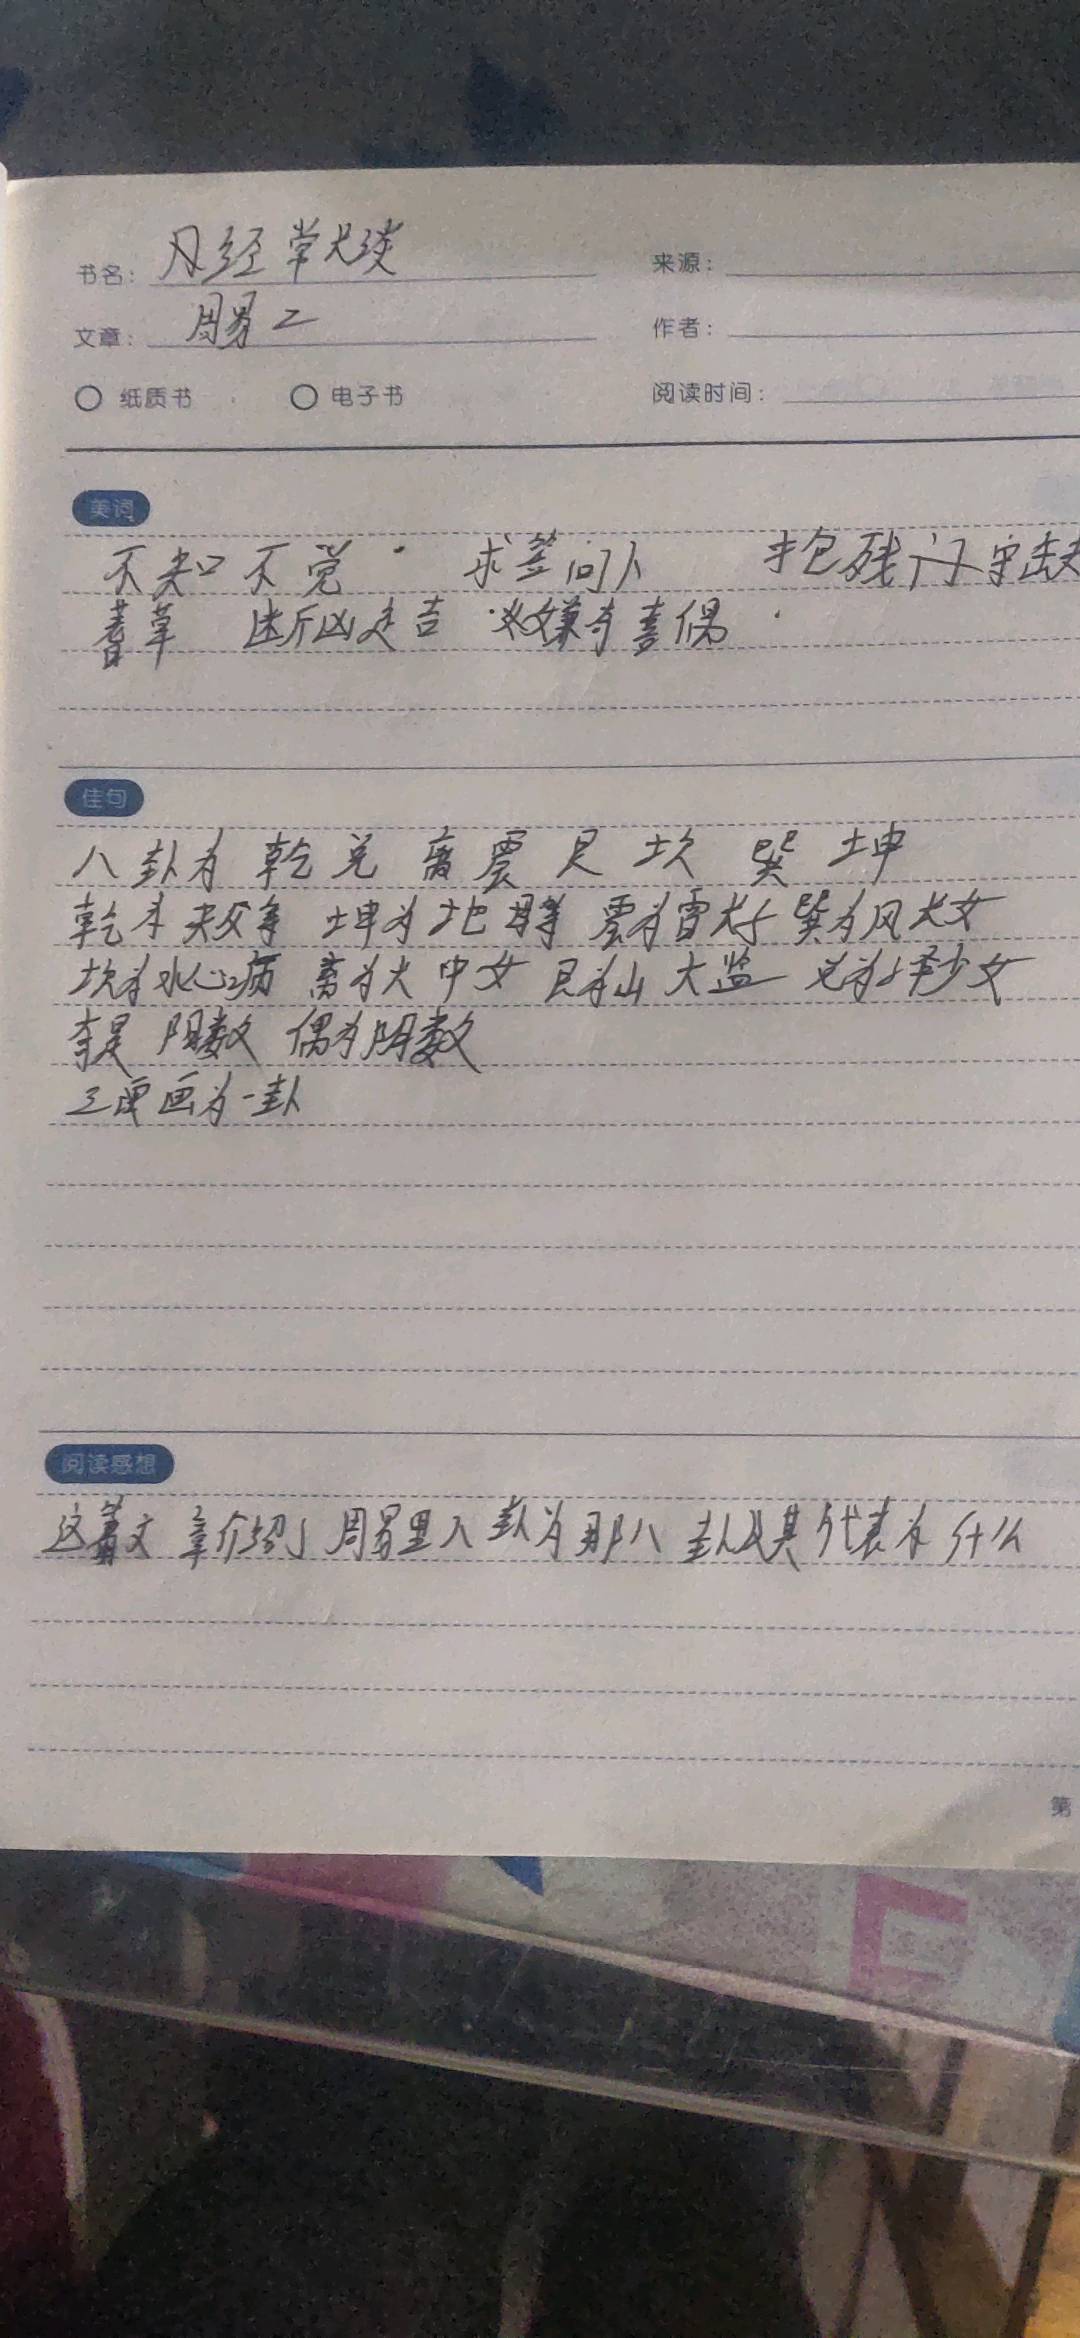 书名： 经常谈
来源：
文章： 周易二
作者：
纸质书 电子书
阅读时间：
美词
不知不觉 求签问卜 抱残守缺
蓍草 断凶是吉 嫌奇喜偶
佳句
八卦为 乾 兑 离 震 艮 坎 巽 坤
乾 父 坤为地 震为雷 巽为风 长女
坎为水心病 离为火 中女 艮为山 太监 兑为泽少女
奇是 阳数 偶为阴数
三画为一卦
阅读感想
这篇文章介绍了周易里八卦为那八卦以及其代表为什么
第